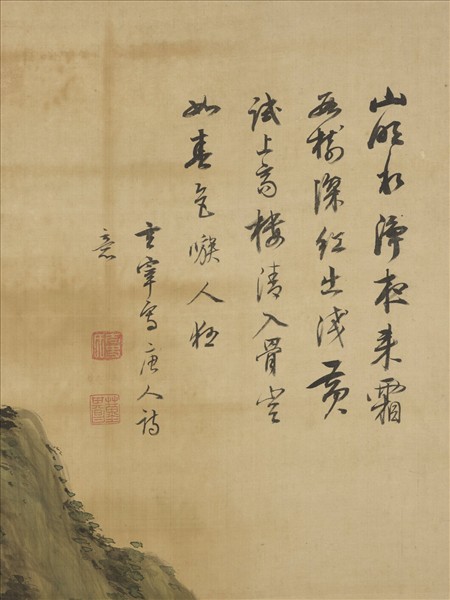 山明水淨夜來霜
數樹深紅出淺黃
試上高樓清入骨豈
如春色嗾人狂
玄宰寫唐人詩
意